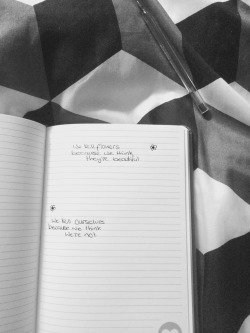 we kill flowers
because we think
they're beautiful
we kill ourselves
because we think
we're not